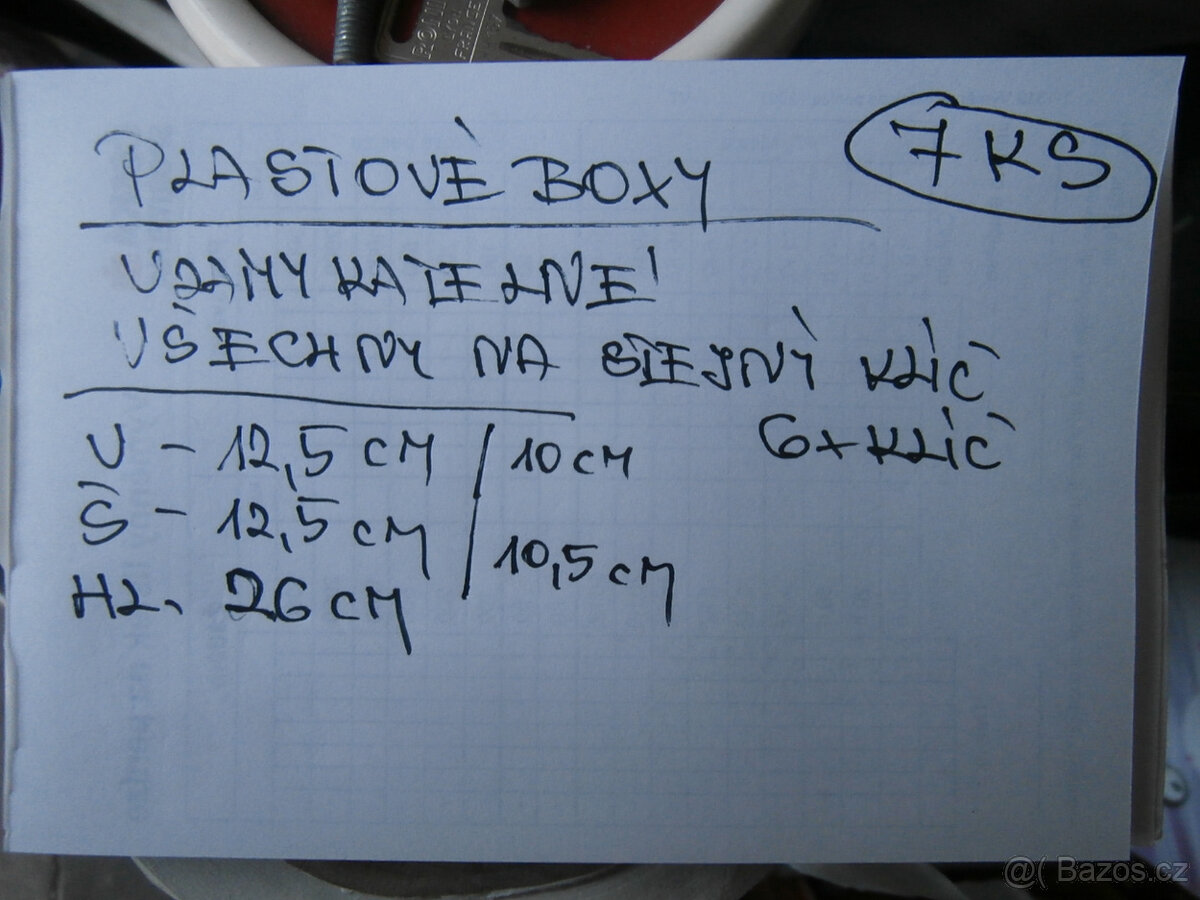 RONIS
FRANCE
PLASTOVÉ BOXY
7 KS
UZAMYKATELNÉ
VŠECHNY NA STEJNÝ KLÍČ
6x KLÍČ
V - 12,5 cm / 10 cm
Š - 12,5 cm / 10,5 cm
HL. 26 cm
@( Bazos.cz